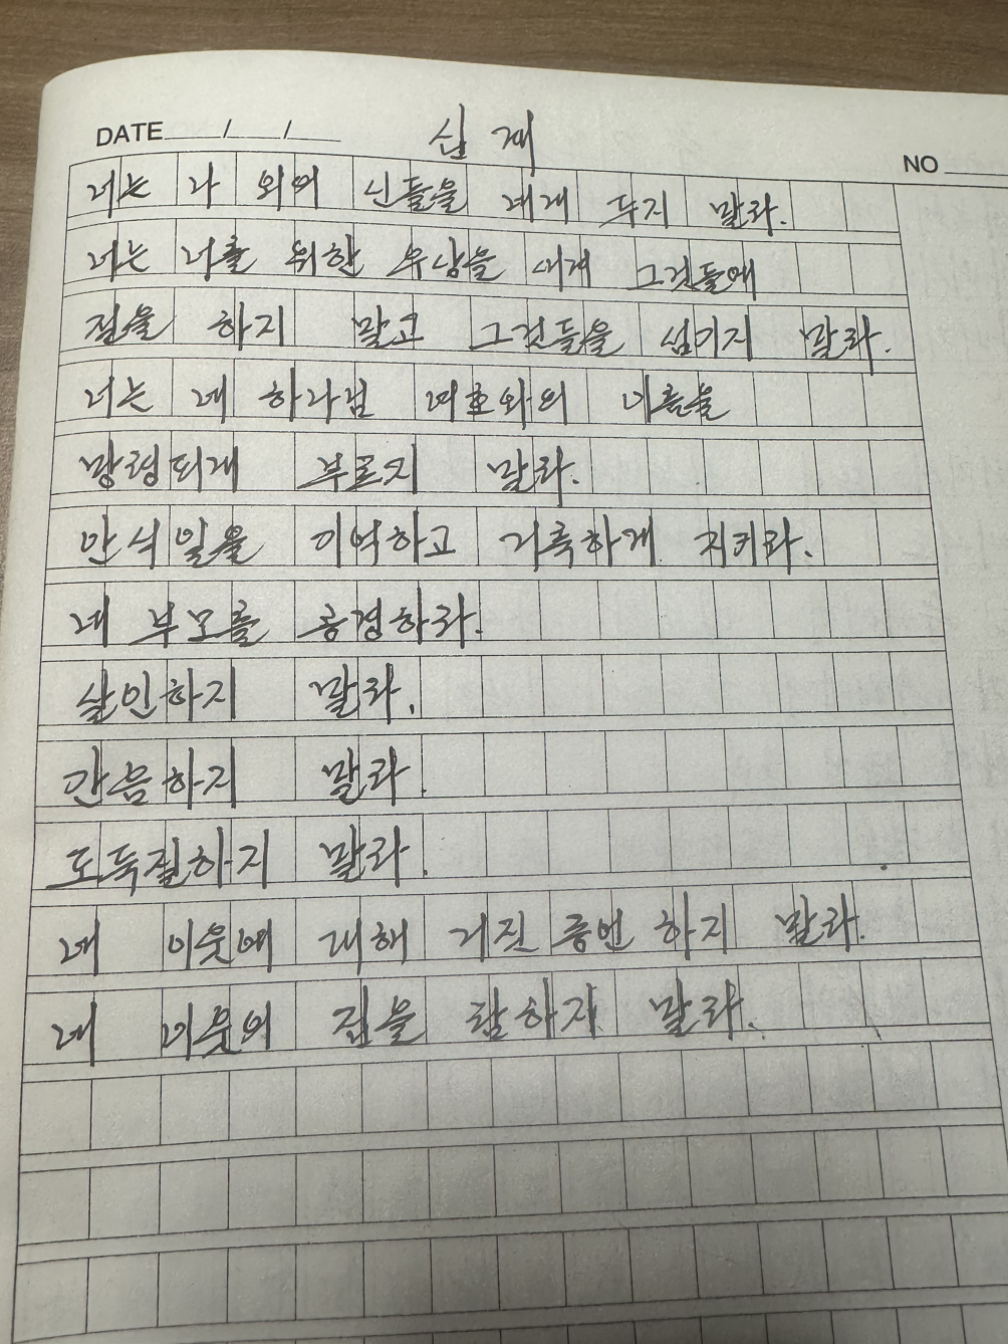 DATE / / 십계
NO
너는 나 외에 신들을 네게 두지 말라.
너는 너를 위한 우상을 새겨 그것들에
절을 하지 말고 그것들을 섬기지 말라.
너는 네 하나님 여호와의 이름을
망령되게 부르지 말라.
안식일을 기억하고 거룩하게 지키라.
네 부모를 공경하라.
살인하지 말라.
간음하지 말라.
도둑질하지 말라.
네 이웃에 대해 거짓 증언 하지 말라.
네 이웃의 집을 탐하지 말라.